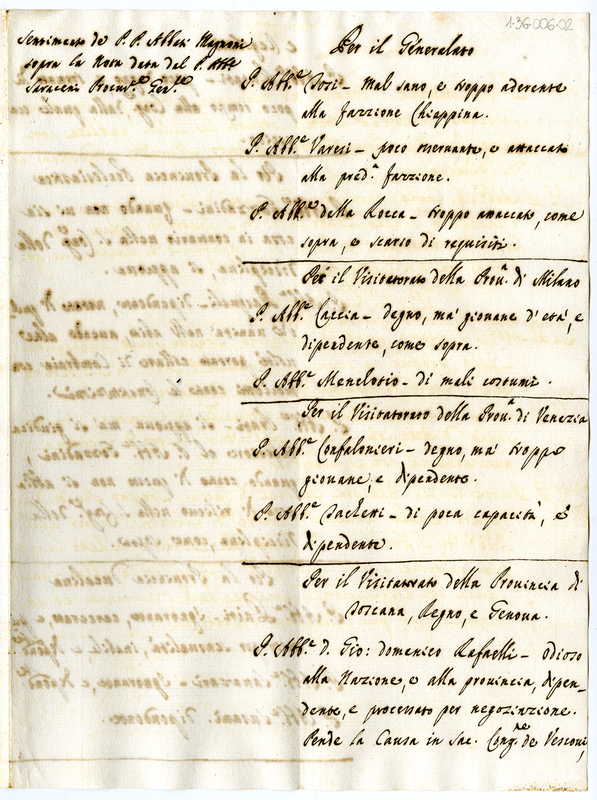 1-36-006-02
Sentimento de P. P. Abbati Magnoni
sopra la Nota data dal P. Abb.e
Saraceni Procur.e Gen.le
Per il Generalato
P. Abb.e Tosi - mal sano, e troppo aderente
alla fazzione Chiappina.
P. Abb.e Varesi - poco osservante, e attaccato
alla pred.a fazzione.
P. Abb.e della Rocca - troppo attaccato, come
sopra, e scarso di requisiti.
Per il Visitatorato della Prou.a di Milano
P. Abb.e Caccia - degno, ma' giouane d'età, e
dipendente, come sopra.
P. Abb.e Menelotio - di mali costumi.
Per il Visitatorato della Prou.a di Venezia
P. Abb.e Confalonieri - degno, ma' troppo
giouane, e dipendente.
P. Abb.e Sachetti - di poca capacità, e
dipendente.
Per il Visitatorato della Prouincia di
Toscana, Regno, e Genoua.
P. Abb.e d. Gio: domenico Rafaelli - odioso
alla Nazione, e alla prouincia, dipen-
dente, e processato per negoziazione.
Pende la Causa in Sac. Cong.ne de Vescoui,